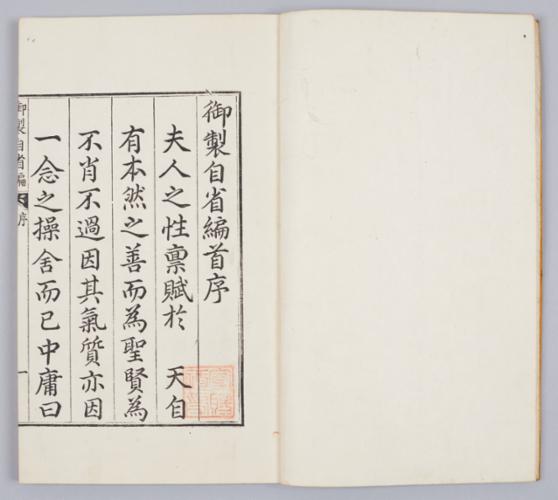 御製自省編首序
夫人之性禀賦於　天自
有本然之善而為聖賢為
不肖不過因其氣質亦因
一念之操舍而已中庸曰
御製自省編　序　一